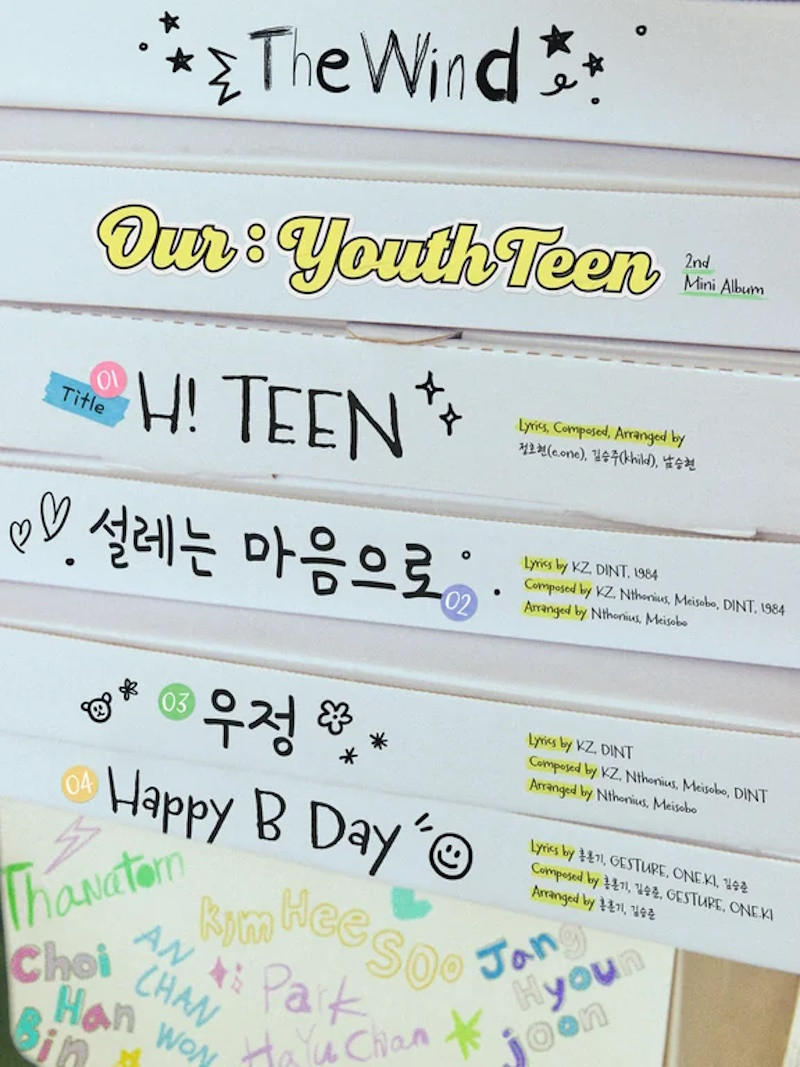 The Wind
Our : YouthTeen
2nd
Mini Album
Title
01
H! TEEN
Lyrics, Composed, Arranged by
정호현(e.one), 김승주(Khild), 남승현
설레는 마음으로
02
Lyrics by KZ, DINT, 1984
Composed by KZ, Nthonius, Meisobo, DINT, 1984
Arranged by Nthonius, Meisobo
03
우정
Lyrics by KZ, DINT
Composed by KZ, Nthonius, Meisobo, DINT
Arranged by Nthonius, Meisobo
04
Happy B Day
Lyrics by 홍훈기, GESTURE, ONE.KI, 김승준
Composed by 홍훈기, 김승준, GESTURE, ONE.KI
Arranged by 홍훈기, 김승준
Thanatorn
Kim Hee Soo
Choi
Han
Bin
AN
CHAN
WON
Park
HaYuChan
Jang
Hyoun
joon